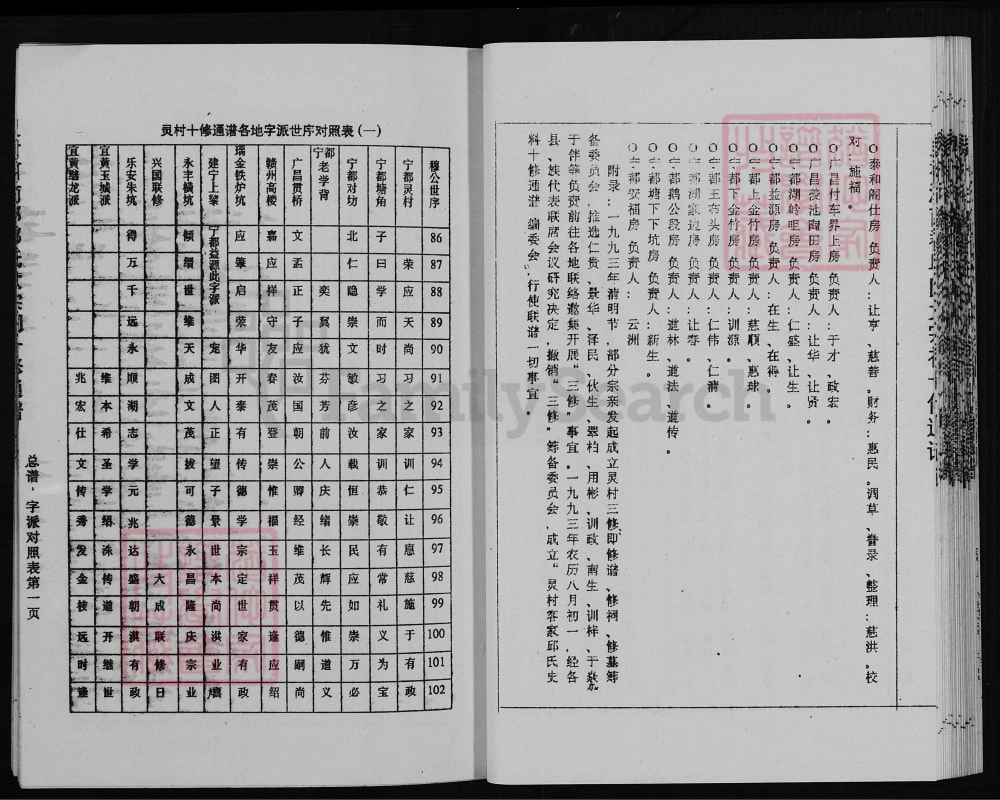 泰和阁仕房 负责人：让亨、慈善。财务：惠民。润草、誊录、整理：慈洪。校
对：施福。
广昌付车界上房 负责人：于才、政宏。
负责人：让华、让贤。
宁都湖岭咀房 负责人：仁盛、让生。
宁都益源房 负责人：在生、在得。
宁都上金竹房 负责人：慈顺、惠球。
宁都下金竹房 负责人：训源。
宁都王布头房 负责人：仁伟、仁清。
负责人：让春。
宁都鹅公段房 负责人：道林、道法、道传。
宁都塘下下坑房 负责人：新生。
宁都安福房 负责人：云洲
附录：一九九三年清明节，部分宗亲发起成立灵村三修，即修谱、修祠、修墓筹
备委员会，推选仁贵、景华、泽民、伙生、翠柏、用彬、训政、南生、训梓、于
于伴等负责前往各地联络邀集开展“三修”事宜。一九九三年农历八月初一，经各
县、族代表联席会议研究决定，撤销“三修”筹备委员会，成立“灵村客家邱氏史
料十修通谱 编委会”，行使联谱一切事宜。
灵村十修通谱各地字派世序对照表(一)
穆公世序 86 87 88 89 90 91 92 93 94 95 96 97 98 99 100 101 102
宁都灵村 荣 应 天 尚 习 之 家 训 仁 让 惠 慈 施 于 有 政
宁都塘角 子 曰 学 而 时 习 之 家 训 恭 敬 有 常 礼 义 为 宝
宁都对坊 北 仁 隐 崇 文 敏 彦 汝 载 恒 崇 民 应 如 崇 万 必
宁都老学背 奕 冀 犹 芬 芳 前 人 庆 绪 长 辉 先 惟 道 义
广昌贯桥 文 孟 正 子 应 汝 国 朝 公 卿 经 维 茂 以 德 嗣 尚
赣州高楼 嘉 应 祥 守 友 春 茂 登 崇 惟 福 玉 祥 贯 逢 应 绍
瑞金铁炉坑 应 肇 启 荣 华 开 泰 有 传 德 学 宗 定 世 家 有 政
建宁上黎 宁都益源此字派 宠 图 人 正 望 子 景 世 本 尚 洪 业
永丰横坑 倾 缙 世 维 天 成 文 茂 拔 可 德 永 昌 隆 庆 宗 业
兴国联修 大 成 联 修 日
乐安朱坑 得 万 千 远 永 顺 湖 志 学 元 兆 达 盛 朝 淇 有 政
宜黄玉城派 维 本 希 圣 学 绍 洙 传 道 开 继 世
宜黄璠龙派 兆 宏 仕 文 传 秀 发 金 枝 远 时 逢
总谱·字派对照表第一页